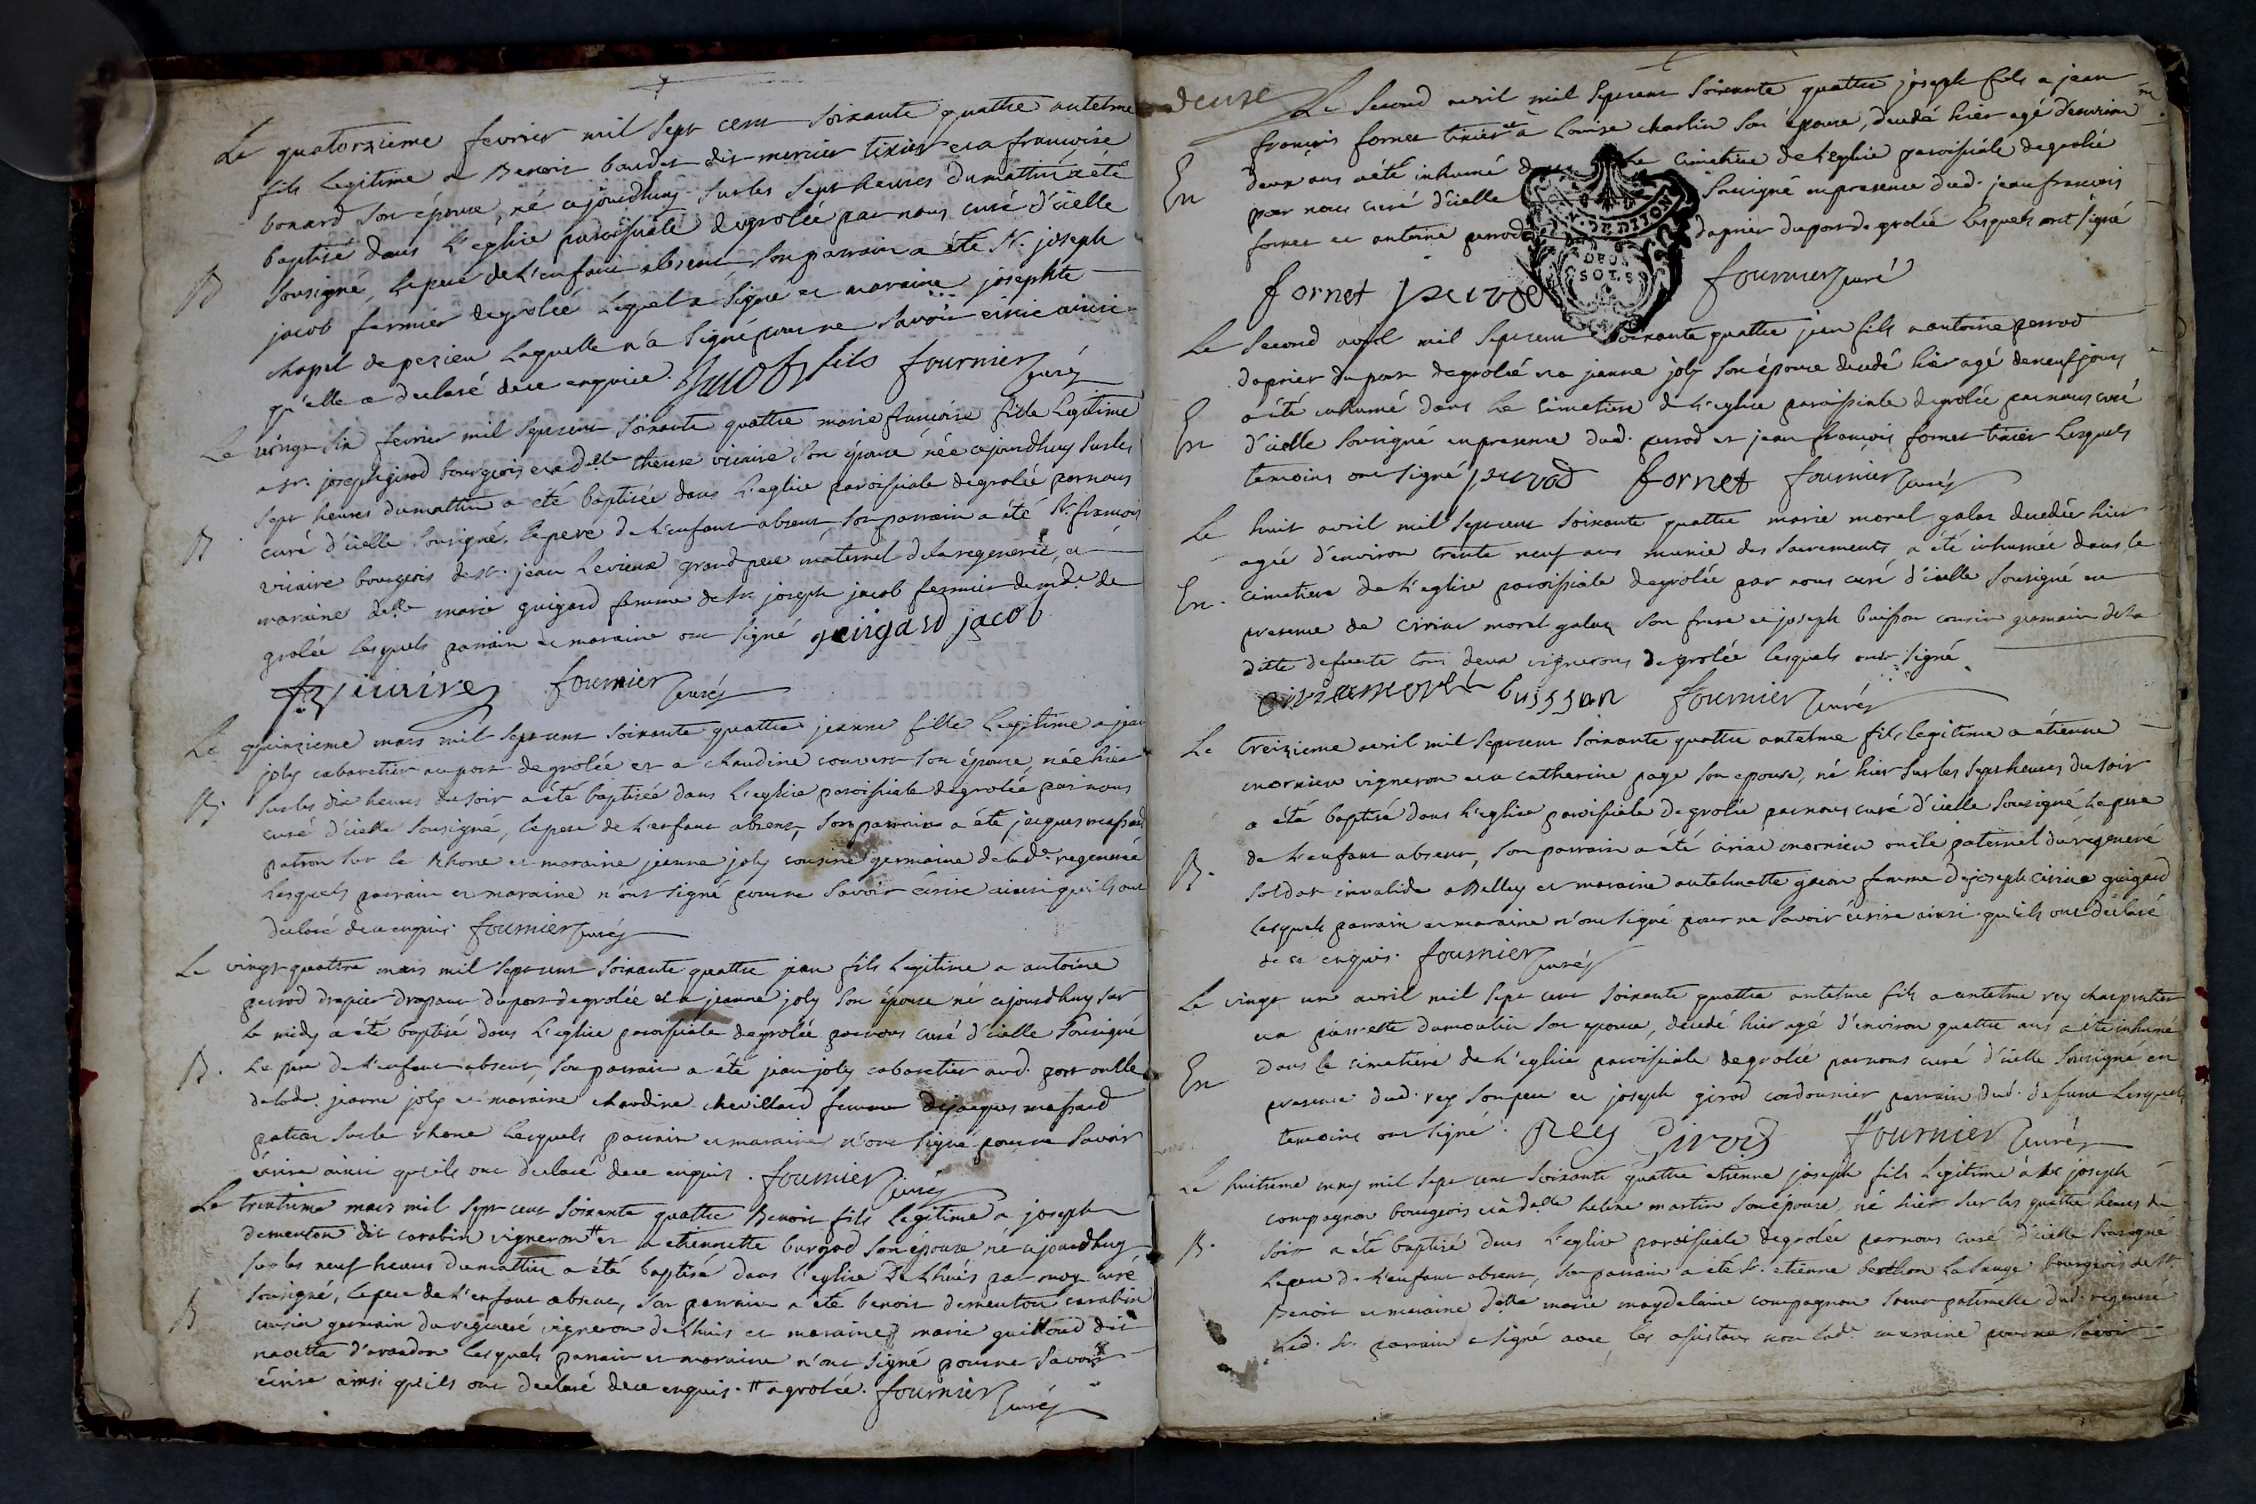 Le quatorzieme fevrier mil sept cent soixante quattre antelme
fils legitime a Benoit baudet dit mercier tixier et a francoise
bonard son épouse, né ajourdhuy sur les sept heures du mattin a été
baptisé dans l'eglise paroissiale degrolée par nous curé d'icelle
B
sousigné, le pere de l'enfant absent son parrain a été Sr. joseph
jacob fermier degrolée lequel a signé et maraine josephte
chapel de pezieu laquelle n'a signé pour ne savoir écrire ainsi
qu'elle a declaré de ce enquise. Jacob fils fournier curé
Le vingt six fevrier mil sept cent soixante quattre marie francoise fille legitime
a sr. joseph girod bourgeois et a delle therese vicaire son épouse née ajourdhuy sur les
sept heures du mattin a été baptisée dans l'eglise paroissiale degrolée par nous
B.
curé d'icelle sousigné, le pere de l'enfant absent, son parrain a été Sr. francois
vicaire bourgeois de st. jean le vieux grand pere maternel de la regenerée, et
maraine delle marie guigard femme de sr. joseph jacob fermier de md. de
grolée lesquels parrain et maraine ont signé guigard jacob
fournier curé
Le quinzieme mars mil sept cent soixante quattre jeanne fille legitime a jean
joly cabaretier au port degrolée et a claudine couvert son épouse, née hier
B.
sur les dix heures du soir a été baptisée dans l'eglise paroissiale degrolée par nous
curé d'icelle sousigné, le pere de l'enfant absent, son parrain a été jacques massard
patron sur le Rhone et maraine jeanne joly cousine germaine de lad. regenerée
lesquels parrain et maraine n'ont signé pour ne savoir écrire ainsi qu'ils ont
declaré de ce enquis. fournier curé
Le vingt quattre mars mil sept cent soixante quattre jean fils legitime a antoine
perrod drapier drapant du port degrolée et a jeanne joly son épouse né ajourdhuy sur
le midy a été baptisé dans l'eglise paroissiale degrolée par nous curé d'icelle sousigné
B.
le pere de l'enfant absent, son parrain a été jean joly cabaretier aud. port oncle
de lad. jeanne joly et maraine claudine chevillard femme de jacques massard
patron sur le rhone lesquels parrain et maraine n'ont signé pour ne savoir
écrire ainsi qu'ils ont declaré de ce enquis. fournier curé
Le trentieme mars mil sept cent soixante quattre Benoit fils legitime a joseph
dementon dit carabin vigneron et a etiennette burgod son épouse né ajourdhuy
sur les neuf heures du mattin a été baptisé dans l'eglise de Lhuis par moy curé
sousigné, le pere de l'enfant absent, son parrain a été benoit dementon carabin
B
cousin germain du regeneré vigneron de Lhuis et maraine marie guilloud dit
nacetta d'arandon lesquels parrain et maraine n'ont signé pour ne savoir
écrire ainsi qu'ils ont declaré de ce enquis. tt a grolée. fournier curé
deuse
Le second avril mil sept cent soixante quattre joseph fils a jean
francois fornet tixier et a Louise charlin son épouse, decedé hier agé d'environ
En
deux ans a été inhumé dans le cimetiere de l'eglise paroissiale degrolée
par nous curé d'icelle sousigné en presence dud. jean francois
fornet et antoine perrod drapier du port de grolée lesquels ont signé
DEUX
SOLS
fornet perrod fournier curé
Le second avril mil sept cent soixante quattre jean fils a antoine perrod
drapier du port degrolée et a jeanne joly son épouse decedé hier agé de neuf jours
a été inhumé dans le cimetiere de l'eglise paroissiale degrolée par nous curé
En
d'icelle sousigné en presence dud. perrod et jean francois fornet tixier lesquels
temoins ont signé perrod fornet fournier curé
Le huit avril mil sept cent soixante quattre marie morel galaz decedée hier
agée d'environ trente neuf ans munie des sacrements a été inhumée dans le
En.
cimetiere de l'eglise paroissiale degrolée par nous curé d'icelle sousigné en
presence de Ciriac morel galaz son frere et joseph buisson cousin germain de la
ditte defunte tous deux vignerons degrolée lesquels ont signé
buisson fournier curé
Le treizieme avril mil sept cent soixante quattre antelme fils legitime a étienne
mornieu vigneron et a catherine page son epouse, né hier sur les sept heures du soir
a été baptisé dans l'eglise paroissiale degrolée par nous curé d'icelle sousigné le pere
B.
de l'enfant absent, son parrain a été ciriac mornieu oncle paternel du regeneré
soldat invalide a Belley et maraine antelmette femme de joseph ciriac guigard
lesquels parrain et maraine n'ont signé pour ne savoir écrire ainsi qu'ils ont declaré
de ce enquis. fournier curé
Le vingt un avril mil sept cent soixante quattre antelme fils a antelme rey charpentier
et a pierrette dumoulin son epouse, decedé hier agé d'environ quattre ans a été inhumé
En
dans le cimetiere de l'eglise paroissiale degrolée par nous curé d'icelle sousigné en
presence dud. rey son pere et joseph girod cordonnier parrain dud. defunt lesquels
temoins ont signé. Rey Girod fournier curé
Le huitieme may mil sept cent soixante quattre etienne joseph fils legitime à sr joseph
compagnon bourgeois et à delle helene martin son épouse, né hier sur les quattre heures du
B.
soir a été baptisé dans l'eglise paroissiale degrolée par nous curé d'icelle sousigné
le pere de l'enfant absent, son parrain a été Sr. etienne berthon bourgeois de st.
Benoit et maraine delle marie magdelaine compagnon soeur paternelle dud. regeneré
Led. Sr. parrain a signé avec les assistans non lad. maraine pour ne savoir